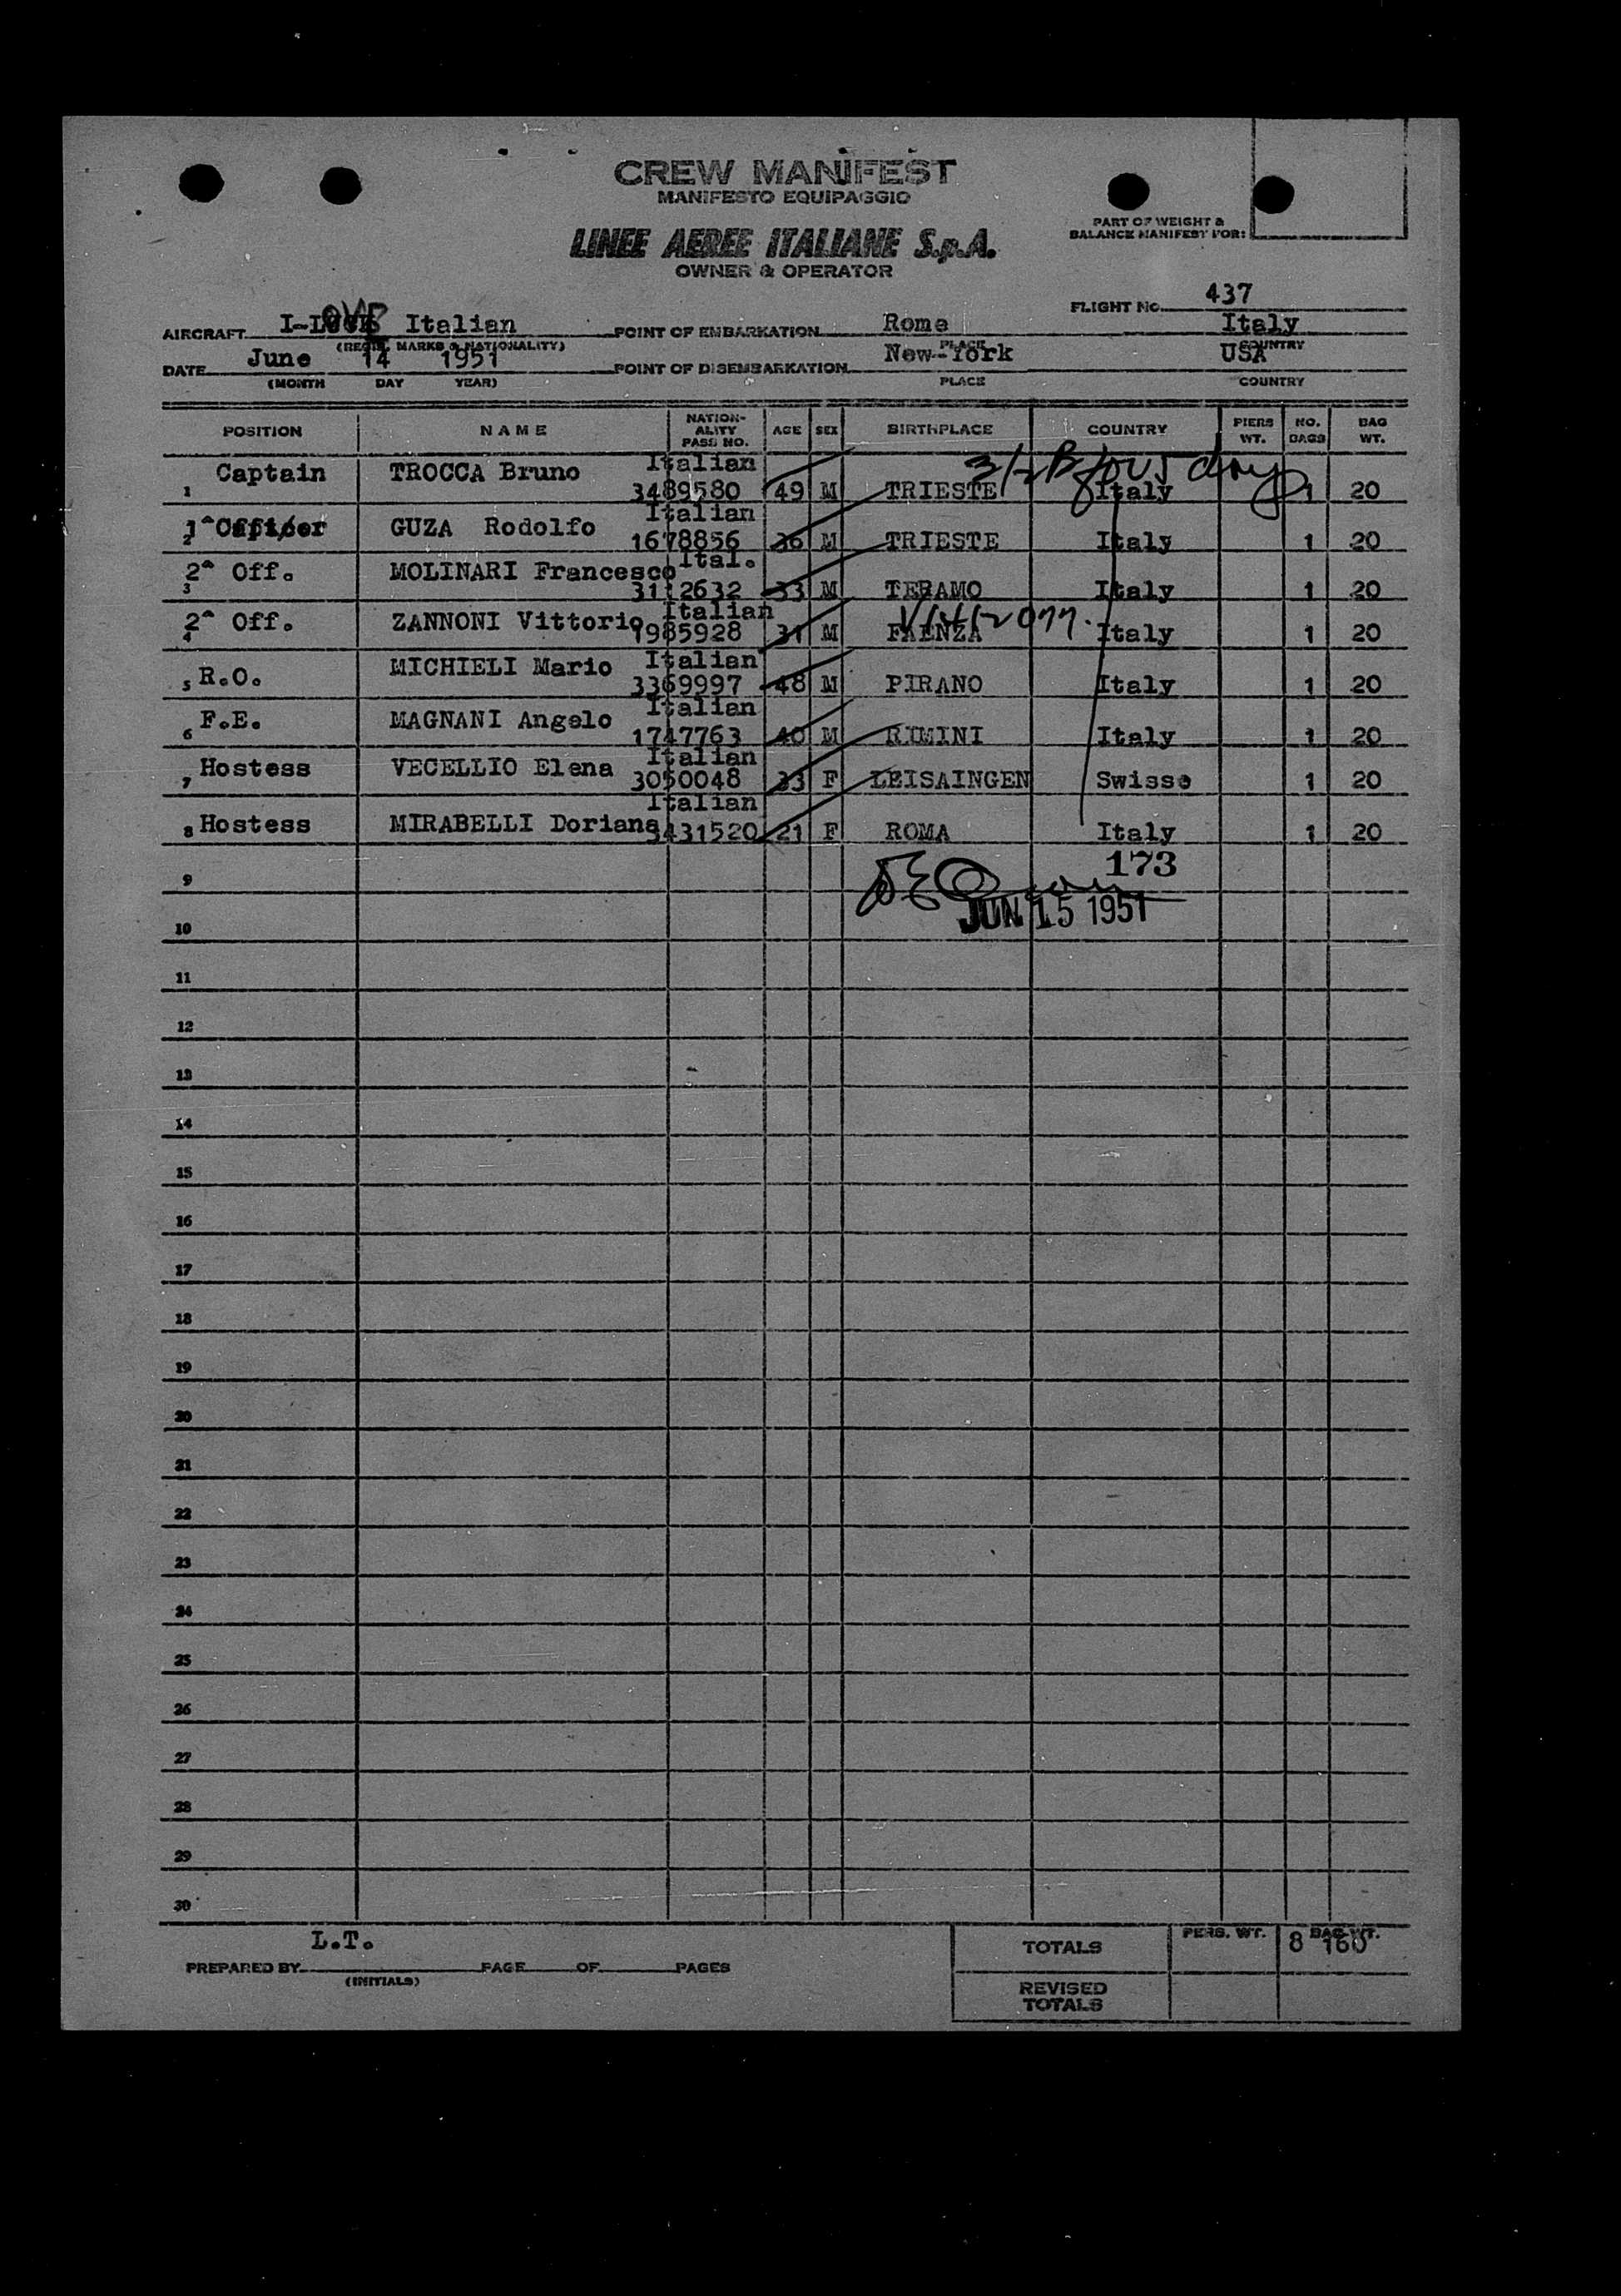 CREW MANIFEST
MANIFESTO EQUIPAGGIO
LINEE AEREE ITALIANE S.p.A.
OWNER & OPERATOR
PART OF WEIGHT &
BALANCE MANIFEST FOR:
FLIGHT No. 437
AIRCRAFT Italian POINT OF EMBARKATION Rome Italy
(REGIS. MARKS & NATIONALITY) PLACE COUNTRY
DATE June 14 1951 POINT OF DISEMBARKATION New-York USA
(MONTH DAY YEAR) PLACE COUNTRY
POSITION NAME NATION-ALITY PASS NO. AGE SEX BIRTHPLACE COUNTRY PIERS WT. NO. BAGS BAG WT.
1 Captain TROCCA Bruno Italian 3489580 49 M TRIESTE Italy 1 20
2 1^ Officer GUZA Rodolfo Italian 1678856 36 M TRIESTE Italy 1 20
3 2^ Off. MOLINARI Francesco Ital. 3112632 33 M TERAMO Italy 1 20
4 2^ Off. ZANNONI Vittorio Italian 1985928 31 M FAENZA Italy 1 20
5 R.O. MICHIELI Mario Italian 3369997 48 M PIRANO Italy 1 20
6 F.E. MAGNANI Angelo Italian 1747763 40 M RIMINI Italy 1 20
7 Hostess VECELLIO Elena Italian 3050048 33 F LEISAINGEN Swisse 1 20
8 Hostess MIRABELLI Doriana Italian 3431520 21 F ROMA Italy 1 20
173
9
JUN 15 1951
10
11
12
13
14
15
16
17
18
19
20
21
22
23
24
25
26
27
28
29
30
L.T.
PREPARED BY PAGE OF PAGES
(INITIALS)
TOTALS PERS. WT. BAG WT. 8 160
REVISED
TOTALS